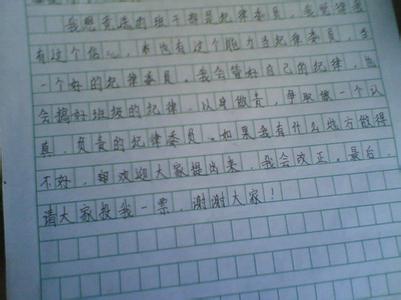 我想竞选的班干部是纪律委员，我觉得我
有这个信心，也有这个能力当纪律委员，当
一个好的纪律委员，我会管好自己的纪律，也
会搞好班级的纪律，以身做责，争取做一个认
真、负责的纪律委员。如果我有什么地方做得
不好，欢迎大家提出来，我会改正，最后，
请大家投我一票，谢谢大家！